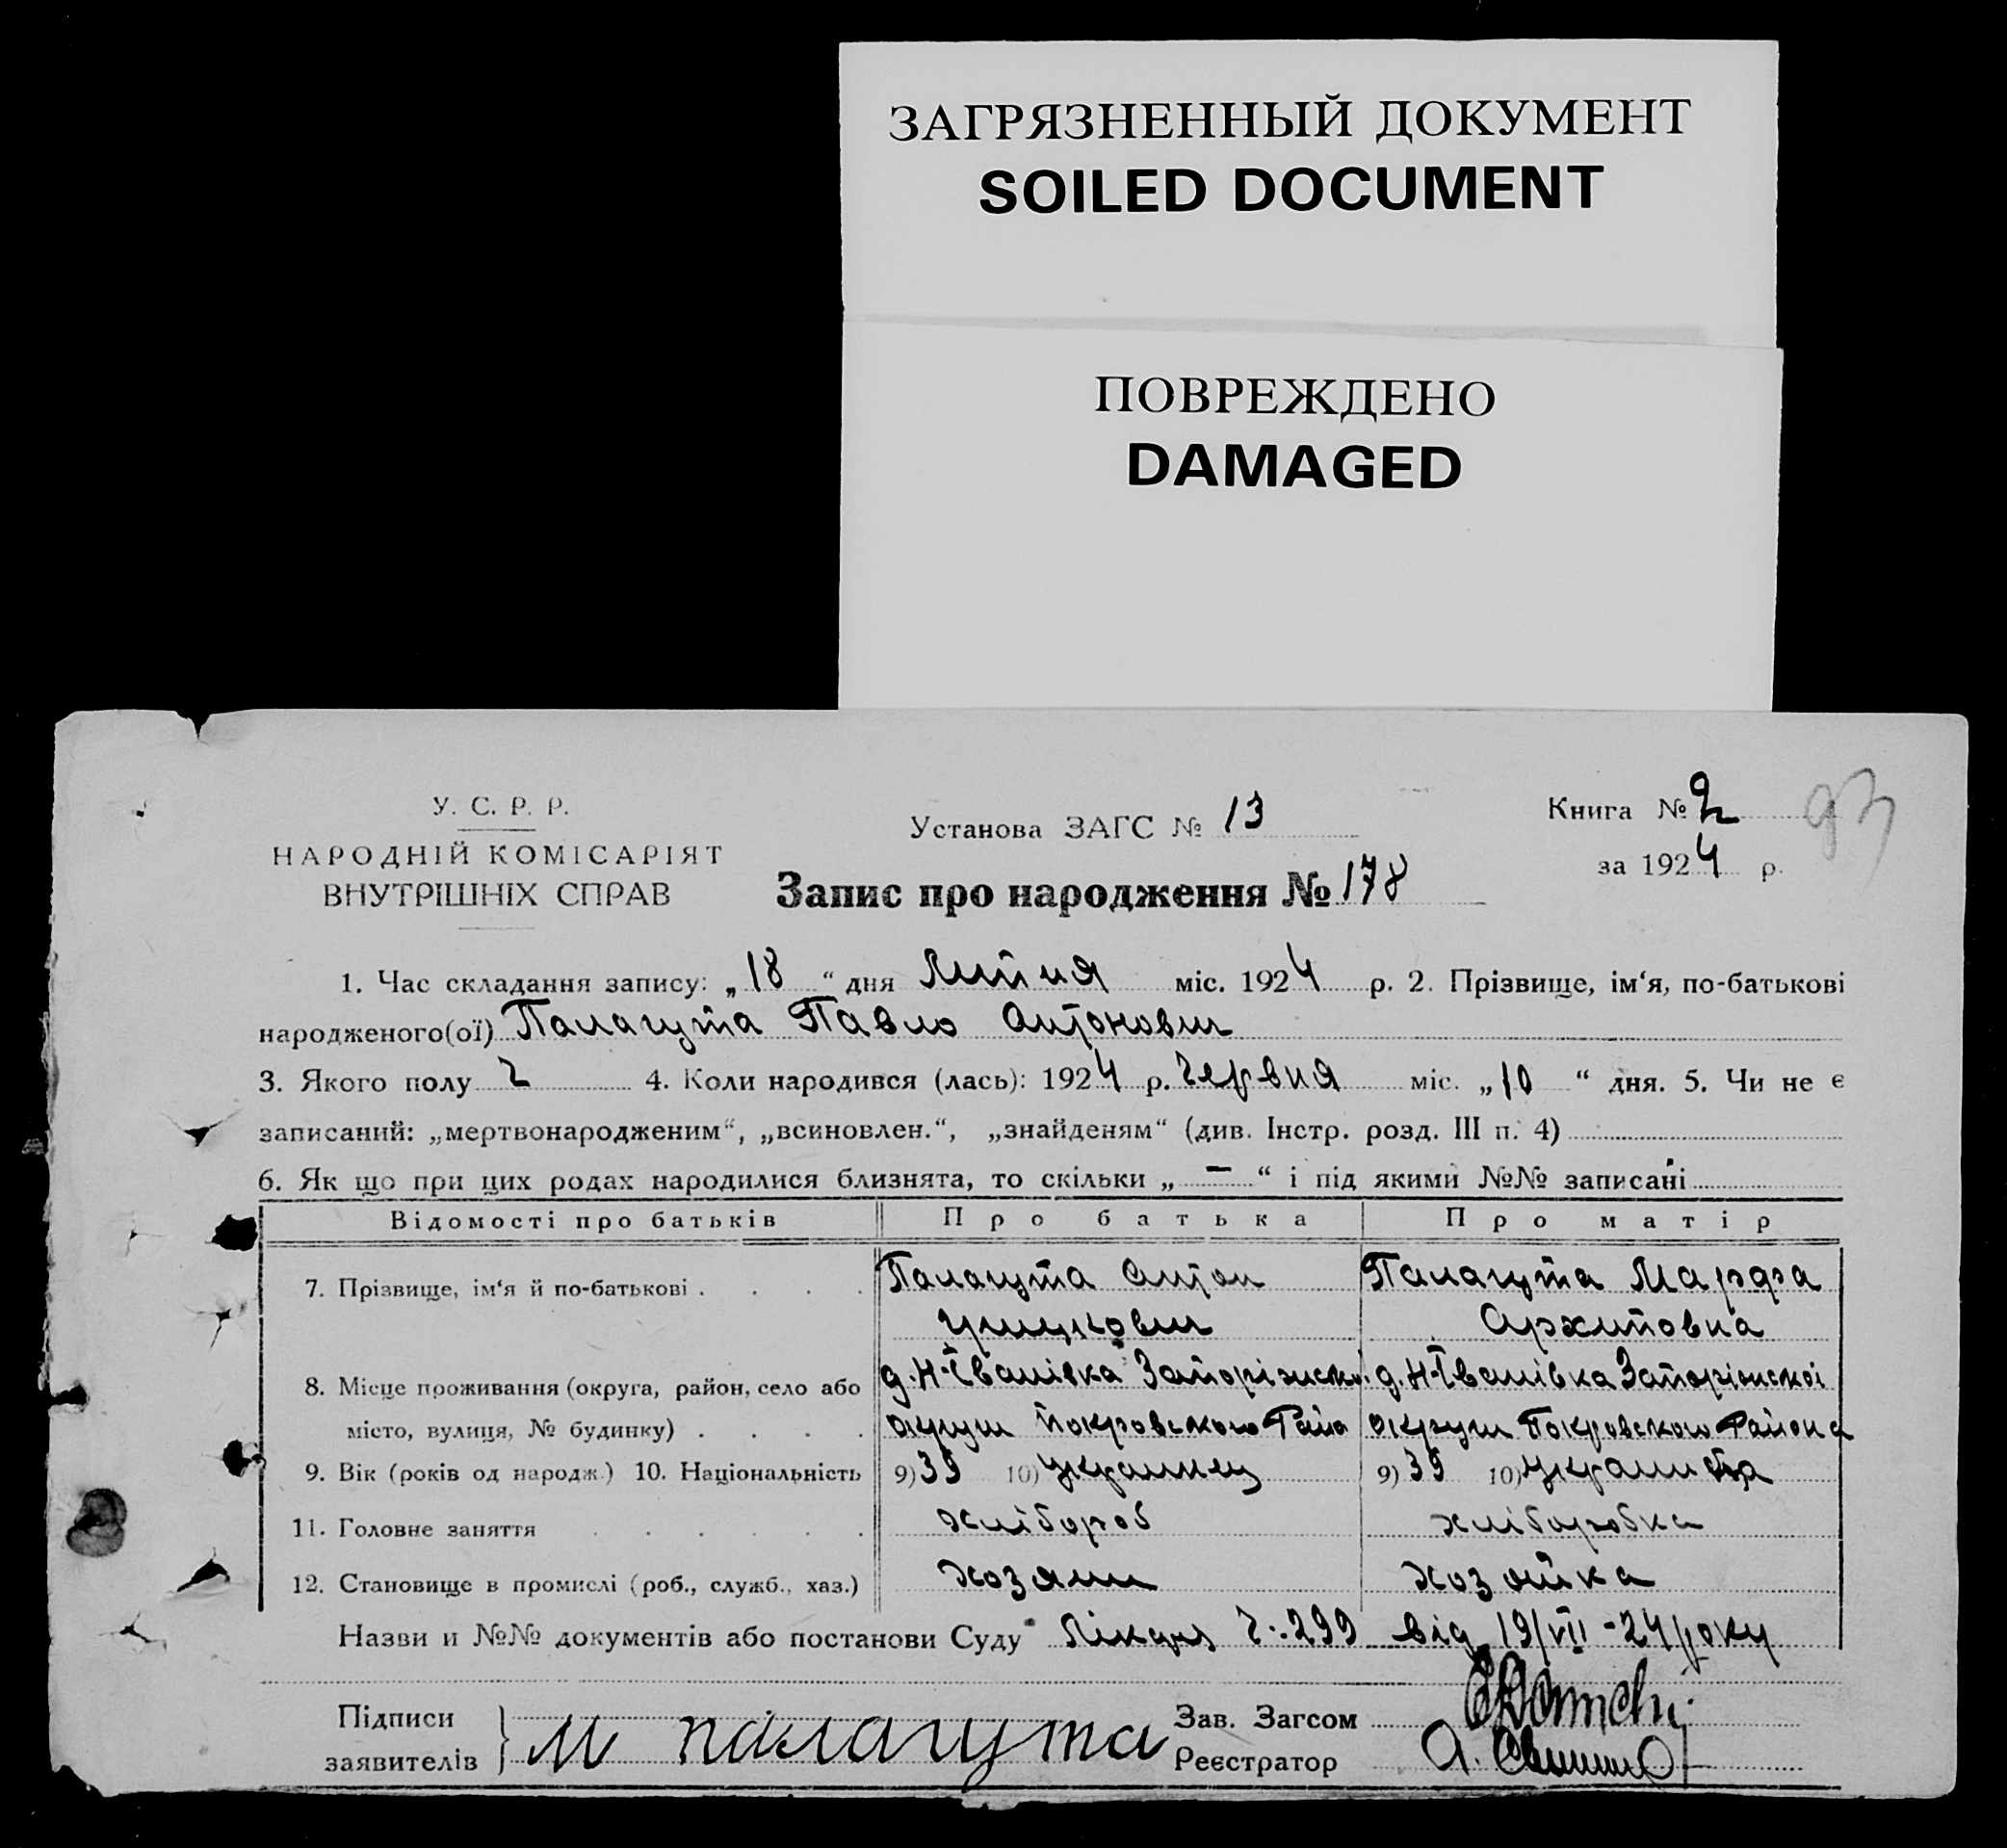 ЗАГРЯЗНЕННЫЙ ДОКУМЕНТ
SOILED DOCUMENT
ПОВРЕЖДЕНО
DAMAGED
У. С. Р. Р.
НАРОДНІЙ КОМІСАРІЯТ
ВНУТРІШНІХ СПРАВ
Установа ЗАГС № 13
Книга № 2
93
за 1924 р.
Запис про народження № 178
1. Час складання запису: „18“ дня Липня міс. 1924 р. 2. Прізвище, ім‘я, по-батькові
народженого(ої) Палагута Павло Антонович
3. Якого полу ч 4. Коли народився (лась): 1924 р. Червня міс. „10“ дня. 5. Чи не є
записаний: „мертвонародженим“, „всиновлен.“, „знайденям“ (див. Інстр. розд. III п. 4)
6. Як що при цих родах народилися близнята, то скільки „ — “ і під якими №№ записані
Відомості про батьків Про батька Про матір
7. Прізвище, ім‘я й по-батькові . . . . Палагута Антон Палагута Марфа
Архитовна
8. Місце проживання (округа, район, село або д. Н-Іванівка Запоріжської д. Н-Іванівка Запоріжскої
місто, вулиця, № будинку) . . . . округи Покровського Райо округи Покровського Района
9. Вік (років од народж.) 10. Національність 9) 39 10) Украинец 9) 39 10) Украинка
11. Головне заняття . . . . . . хлібороб хліборобка
12. Становище в промислі (роб., служб., хаз.) хозяин хозяйка
Назви и №№ документів або постанови Суду Лікаря Ч. 299 від 19/VII-24 року
Підписи
заявителів } М Палагута
Зав. Загсом
Реєстратор А.